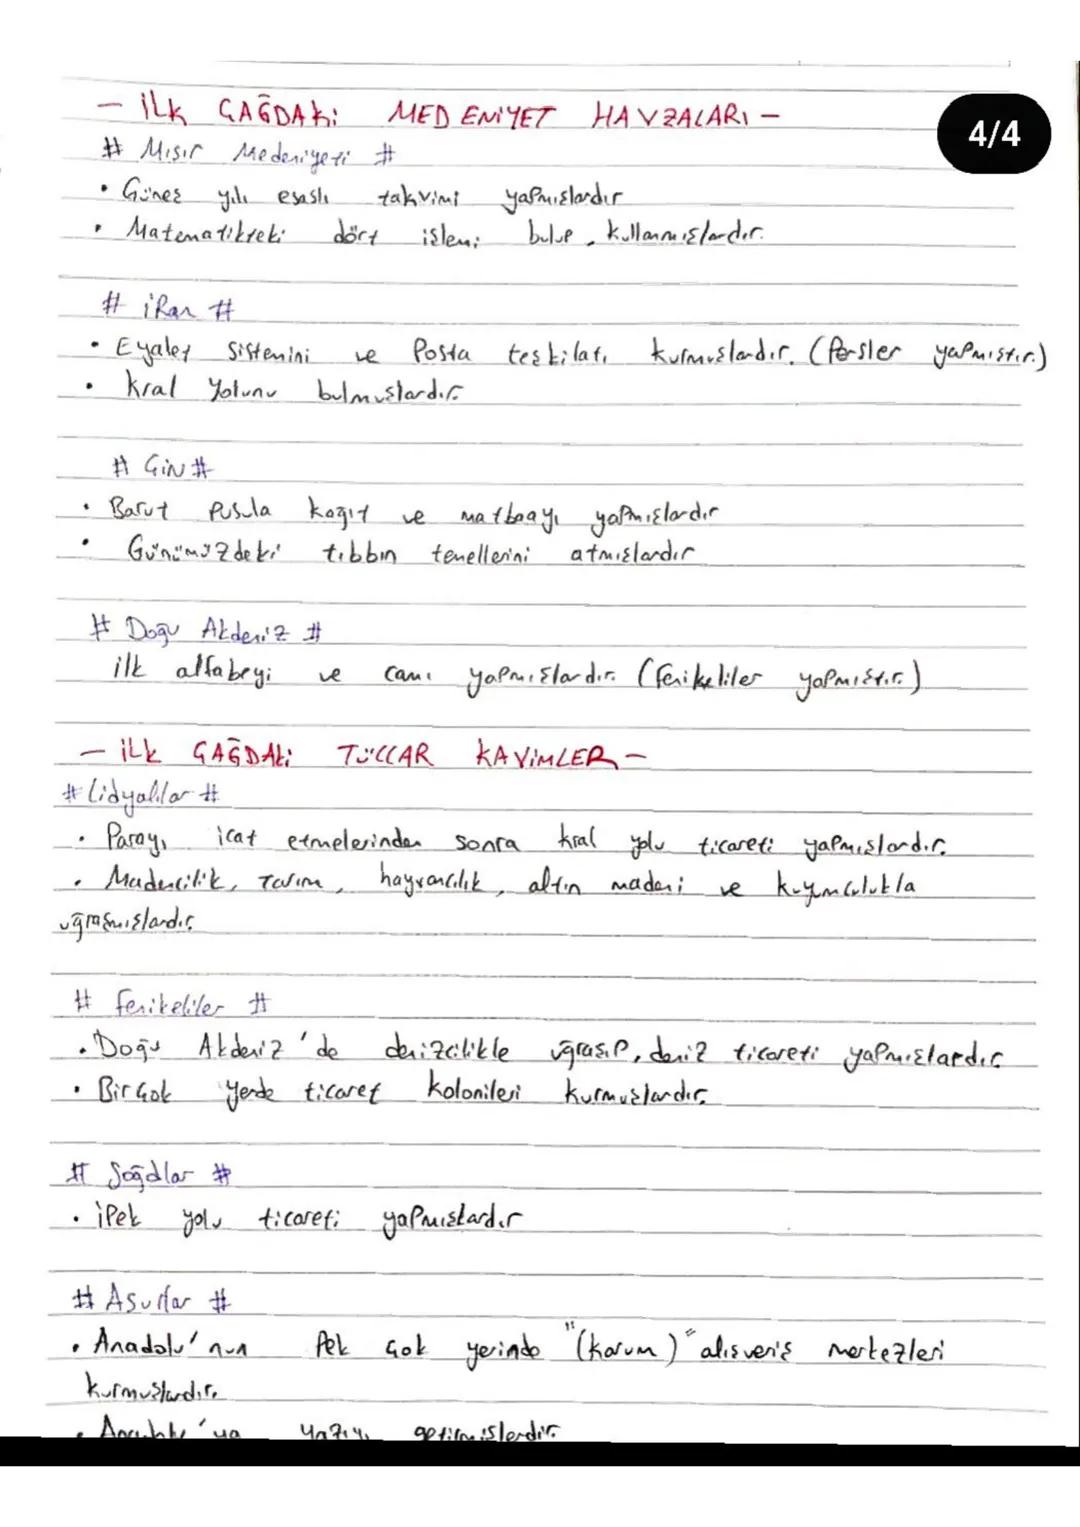 - İLK ÇAĞDAKİ MEDENİYET HAVZALARI -
4/4
# Mısır Medeniyeti #
• Güneş yılı esaslı takvimi yapmışlardır
• Matematikteki dört işlemi bulup, kullanmışlardır.
# İRan #
• Eyalet sistemini ve Posta teşkilatı kurmuşlardır. (Persler yapmıştır.)
• Kral Yolunu bulmuşlardır.
# ÇİN #
• Barut Pusula kağıt ve matbaayı yapmışlardır
• Günümüzdeki tıbbın temellerini atmışlardır
# Doğu Akdeniz #
ilk alfabeyi ve camı yapmışlardır. (Fenikeliler yapmıştır.)
- İLK ÇAĞDAki TÜCCAR KAVİMLER -
# Lidyalılar #
• Parayı icat etmelerinden sonra kral yolu ticareti yapmışlardır.
• Madencilik, Tarım, hayvancılık, altın madeni ve kuyumculukla
uğraşmışlardır.
# Fenikeliler #
• Doğu Akdeniz'de denizcilikle uğraşıp, deniz ticareti yapmışlardır.
• Birçok yerde ticaret kolonileri kurmuşlardır.
# Soğdlar #
• İPek yolu ticareti yapmışlardır
# Asurlar #
• Anadolu'nun Pek çok yerinde "(karum)" alışveriş merkezleri
kurmuşlardır.
• Anadolu'ya yazıyı getirmişlerdir.